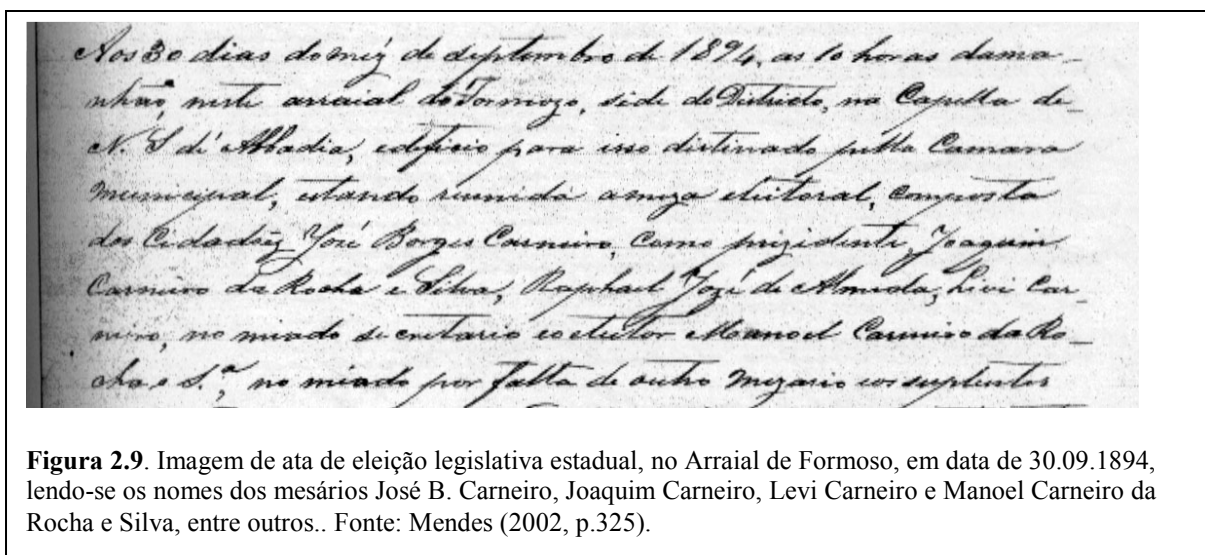 Aos 30 dias do mez de septembro de 1894, as 10 horas dama_
nhaõ, neste arraial do Formozo, séde do Districto, na Capella de_
N. S. dé Abbadia, edificio para isso distinado pella Camara
Municipal, estando reunida a meza eleitoral, composta
dos Cidadoẽz José Borges Carneiro, Como prezidente, Joaquim
Carneiro da Rocha e Silva, Raphael Jozé de Almeida, Livi Car_
neiro, no miado secretario e o eleitor Manoel Carneiro da Ro_
cha e S.ª, no miado por falta de outro Mezario e os suplentes
Figura 2.9. Imagem de ata de eleição legislativa estadual, no Arraial de Formoso, em data de 30.09.1894,
lendo-se os nomes dos mesários José B. Carneiro, Joaquim Carneiro, Levi Carneiro e Manoel Carneiro da
Rocha e Silva, entre outros.. Fonte: Mendes (2002, p.325).